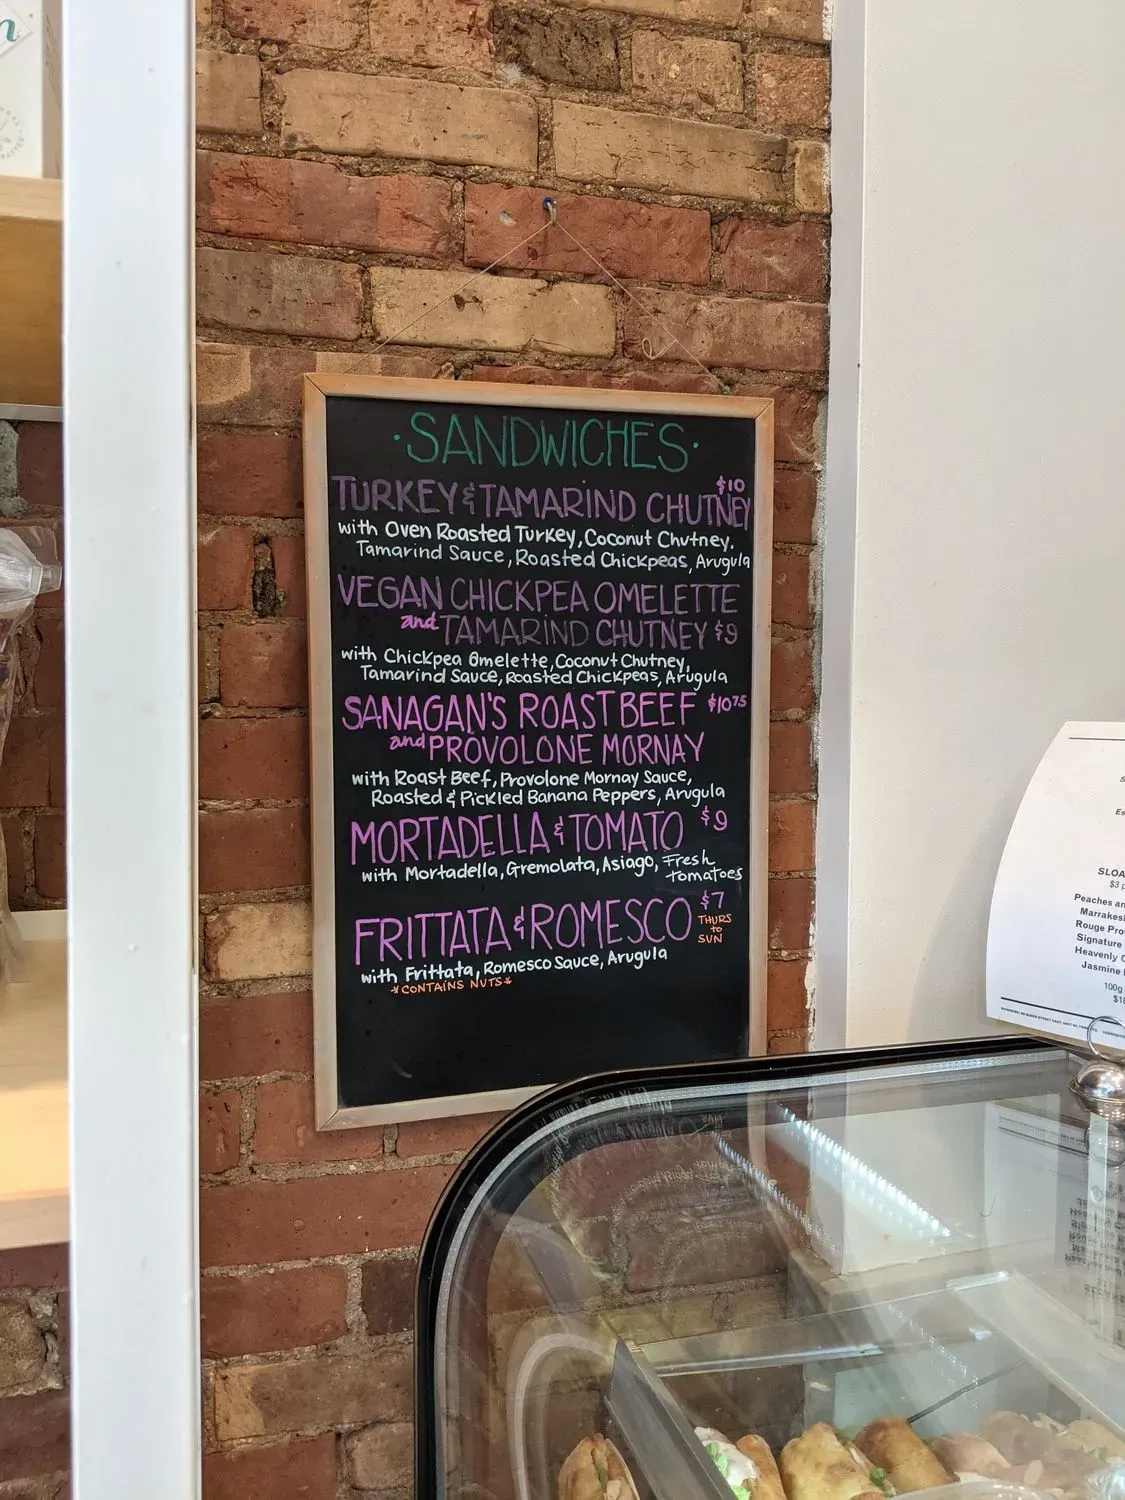 ·SANDWICHES·
$10
TURKEY & TAMARIND CHUTNEY
with Oven Roasted Turkey, Coconut Chutney,
Tamarind Sauce, Roasted Chickpeas, Arugula
VEGAN CHICKPEA OMELETTE
and TAMARIND CHUTNEY $9
with Chickpea Omelette, Coconut Chutney,
Tamarind Sauce, Roasted Chickpeas, Arugula
SANAGAN'S ROAST BEEF $10.75
and PROVOLONE MORNAY
with Roast Beef, Provolone Mornay Sauce,
Roasted & Pickled Banana Peppers, Arugula
MORTADELLA & TOMATO $9
with Mortadella, Gremolata, Asiago, Fresh
Tomatoes
FRITTATA & ROMESCO $7
THURS
to
SUN
with Frittata, Romesco Sauce, Arugula
*CONTAINS NUTS*
$3
Peaches
Rouge
Signature
Heavenly
Jasmine
100g